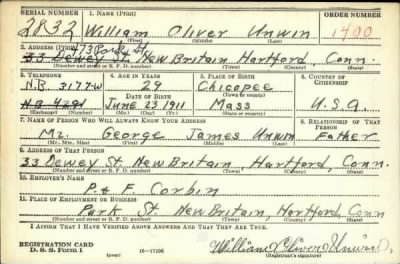 SERIAL NUMBER 1. NAME (Print) ORDER NUMBER
2832 William Oliver Unwin 1700
(First) (Middle) (Last)
2. ADDRESS (Print)
473 Park St.
33 Dewey St. New Britain, Hartford, Conn.
(Number and street or R. F. D. number) (Town) (County) (State)
3. TELEPHONE 4. AGE IN YEARS 5. PLACE OF BIRTH 6. COUNTRY OF CITIZENSHIP
N.B. 3177-W 29 Chicopee
(Town or county)
DATE OF BIRTH
N.B. 4291 June 23, 1911 Mass U.S.A.
(Exchange) (Number) (Mo.) (Day) (Yr.) (State or country)
7. NAME OF PERSON WHO WILL ALWAYS KNOW YOUR ADDRESS 8. RELATIONSHIP OF THAT PERSON
Mr. George James Unwin Father
(Mr., Mrs., Miss) (First) (Middle) (Last)
9. ADDRESS OF THAT PERSON
33 Dewey St. New Britain, Hartford, Conn.
(Number and street or R. F. D. number) (Town) (County) (State)
10. EMPLOYER'S NAME
P. & F. Corbin
11. PLACE OF EMPLOYMENT OR BUSINESS
Park St. New Britain, Hartford, Conn
(Number and street or R. F. D. number) (Town) (County) (State)
I AFFIRM THAT I HAVE VERIFIED ABOVE ANSWERS AND THAT THEY ARE TRUE.
REGISTRATION CARD
D. S. S. Form 1 16-17105 William Oliver Unwin.
(Registrant's signature)